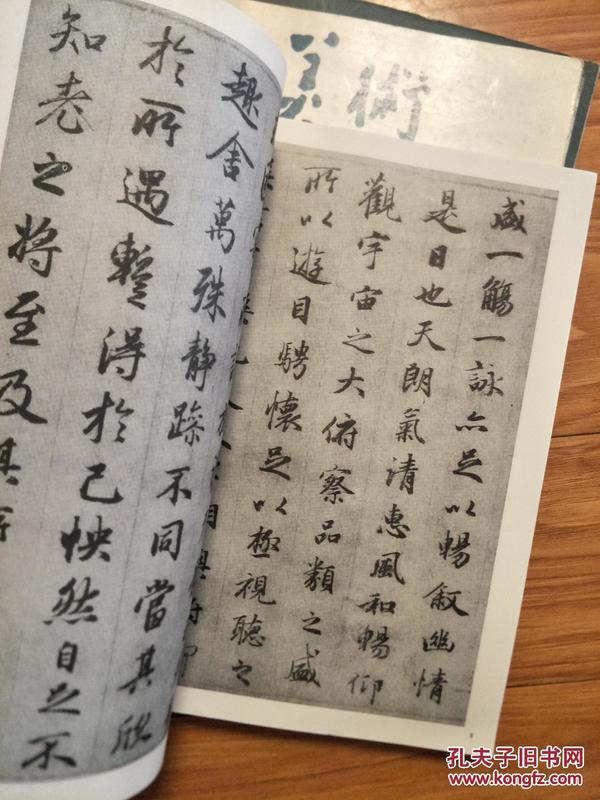 美術
盛一觴一詠亦足以暢敘幽情
是日也天朗氣清惠風和暢仰
觀宇宙之大俯察品類之盛
所以遊目騁懷足以極視聽之
趣舍萬殊静躁不同當其欣
於所遇蹔得於己怏然自足不
知老之將至及其
孔夫子旧书网
www.kongfz.com